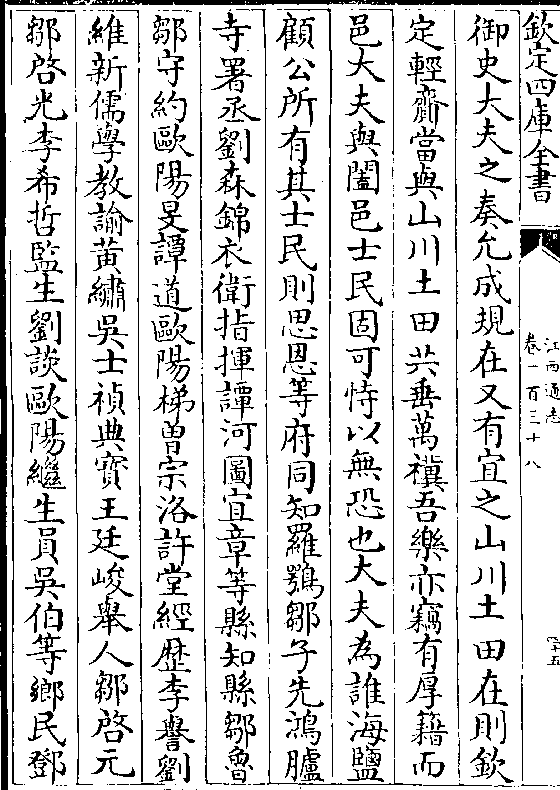 欽定四庫全書
江西通志
卷一百三十八
四十五
御史大夫之奏允成規在又有宜之山川土田在則欽
定輕齎當與山川土田共垂萬禩吾樂亦竊有厚籍而
邑大夫與闔邑士民固可恃以無恐也大夫為誰海鹽
顧公所有其士民則思恩等府同知羅鶚鄒子先鴻臚
寺署丞劉森錦衣衛指揮譚河圖宜章等縣知縣鄒魯
鄒守約歐陽旻譚道歐陽梯曽宗洛許堂經歴李譽劉
維新儒學教諭黄繡吳士禎典寳王廷峻舉人鄒啓元
鄒啓光李希哲監生劉談歐陽繼生員吳伯等鄉民鄧